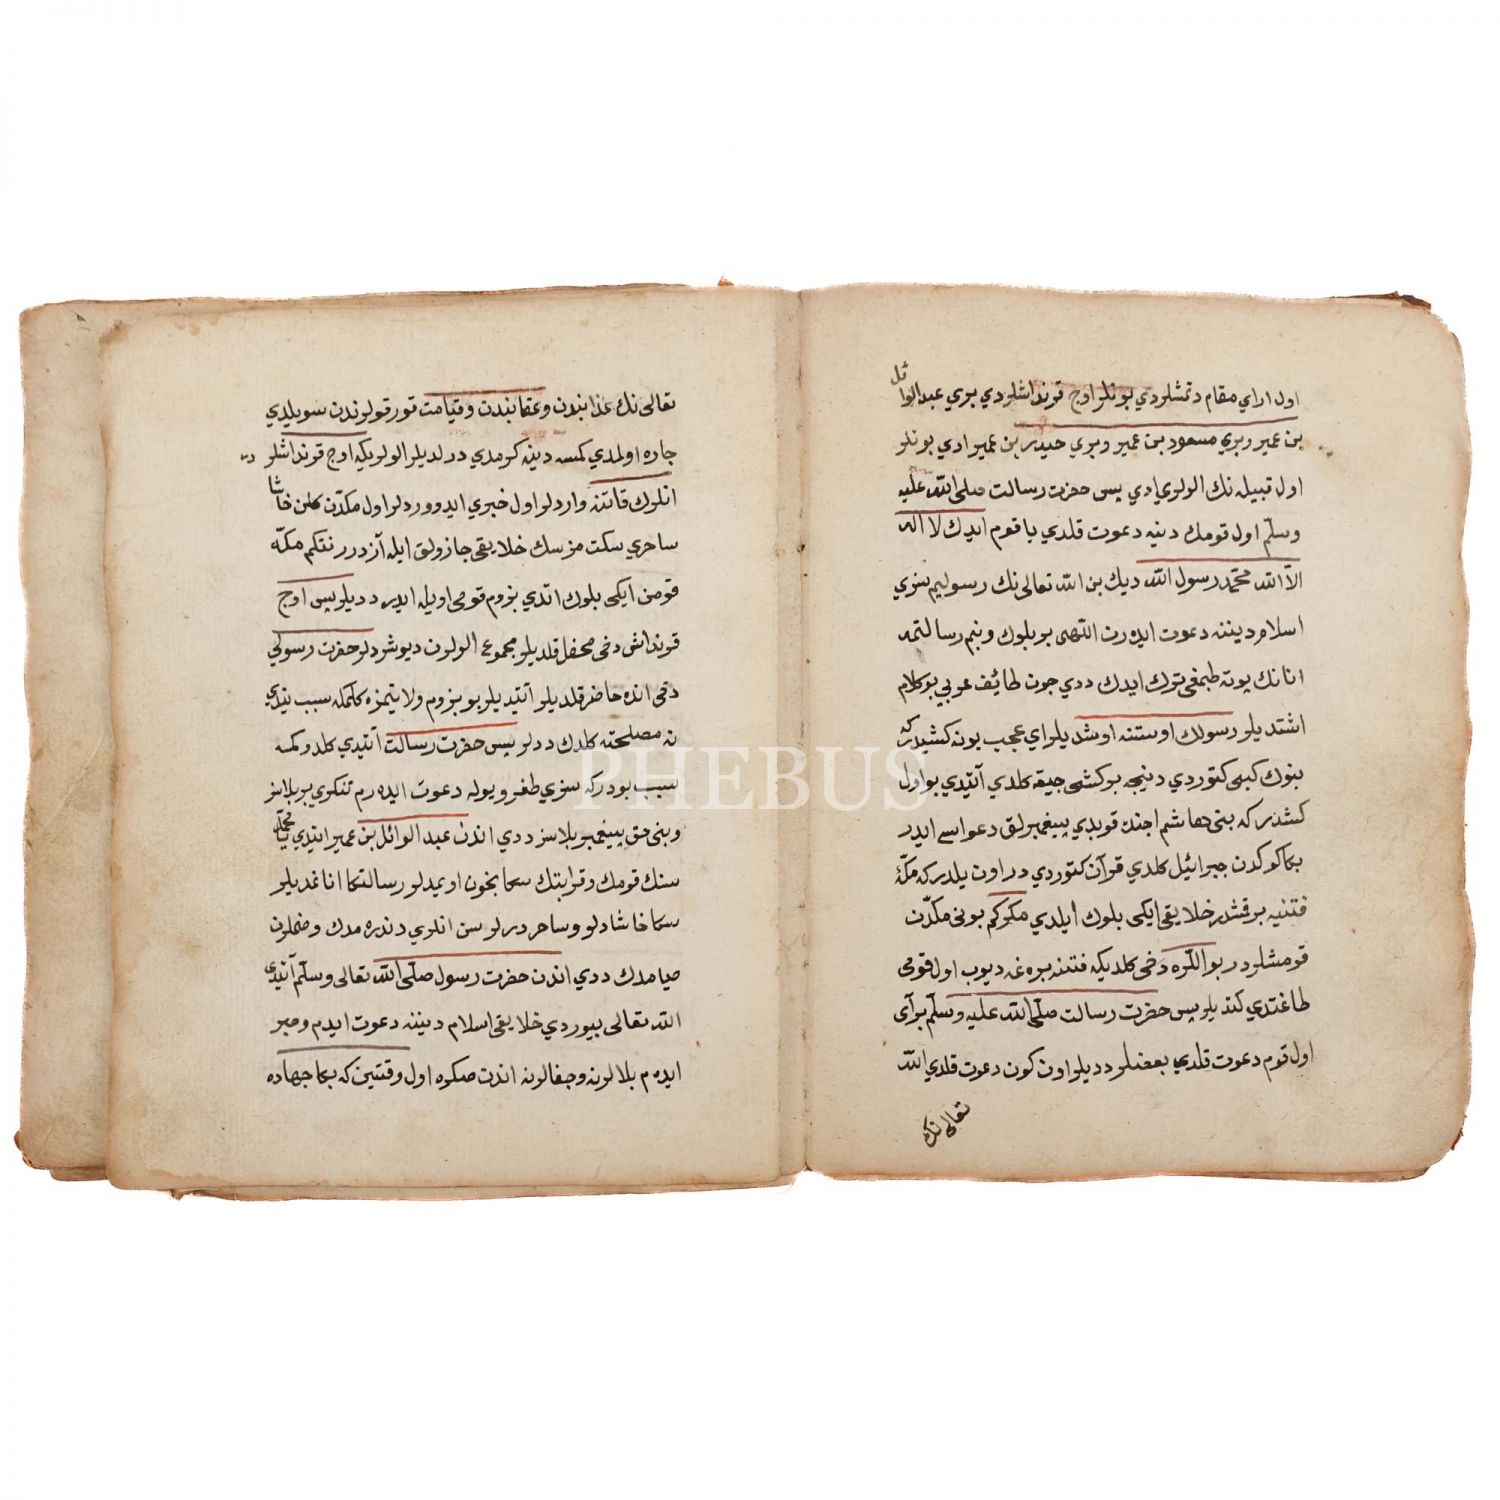 اول اراي مقام دتمشلردي بونلر اوج قرنداشلردي بري عبدالوائل
بن عمير وبري مسعود بن عمير وبري حيدر بن عمير ادي بونلر
اول قبيله نك الولري ادي پس حضرت رسالت صلى الله عليه
وسلّم اول قومك دينه دعوت قلدي يا قوم ايدك لا اله
الاّ الله محمّد رسول الله ديك بن الله تعالى نك رسوليم سزي
اسلام ديننه دعوت ايده رن اللهى بر بلوك وبنم رسالتمه
انانك پوته طپمغى ترك ايدك ددي جون طائف عربي بو كلام
اشتديلر رسولك اوستنه اوشديلر اي عجب بونه كشيدر كه
بنوك كبى كتوردي دينجه بر كشى جيقه كلدي آيتدي بو اول
كشدر كه بنى هاشم اجنده قوپدي پيغمبرلق دعواسى ايدر
بكا كوكدن جبرائيل كلدي قرآن كتوردي در اون يلدر كه مكّه
فتنيه برقشدر خلايقى ايكى بلوك ايلدي مكر كم بونى مكّدن
قومشلردر بو الكره دخى كلديكه فتنه بره غه ديوب اول قومى
طاغتدي كتديلر پس حضرت رسالت صلّى الله عليه وسلّم بر آى
اول قوم دعوت قلدي بعضلر دديلر اون كون دعوت قلدي الله
تعالى نك
تعالى نك عذابندن وعقابندن وقيامت قورقولرندن سويلدي
جاره اولمدي كمسه دينه كرمدي دردلديلر الولريكه اوج قرنداشلر در
انلرك قاتنه واردلر اول خبري ايدوورد لر اول مكّدن كلن خاشا
ساحري سكت مز سك خلايقى جازولق ايله آزدرر نتكم مكّه
قومن ايكى بلوك اتدي بزوم قومى اويله ايدر دديلر پس اوج
قرنداش دخى محفل قلديلر مجموع الولرن ديوشردلر حضرت رسولي
دخى انده حاضر قلديلر آيتديلر بو بزوم ولايتمزه كلمكه سبب نيدي
نه مصلحته كلدك ددلر پس حضرت رسالت آيتدي كلدوكمه
سبب بودر كه سزي طغرو يوله دعوت ايده رم تنكري بر بلاسز
وبنى حق پيغمبر بلاسز ددي اندن عبد الوائل بن عمير ايتدي يا محمّد
سنك قومك وقرابتك سكا بخون اويمدلر رسالتكا اناغديلر
سكا خاشادلو وساحر درلر سن انلري دندره مدك وضملرن
صيامدك ددي اندن حضرت رسول صلّى الله تعالى وسلّم آيتدي
الله تعالى بيوردي خلايقى اسلام ديننه دعوت ايدم وصبر
ايده م بلالرنه وجفالرنه اندن صكره اول وقتين كه بكا جهاده